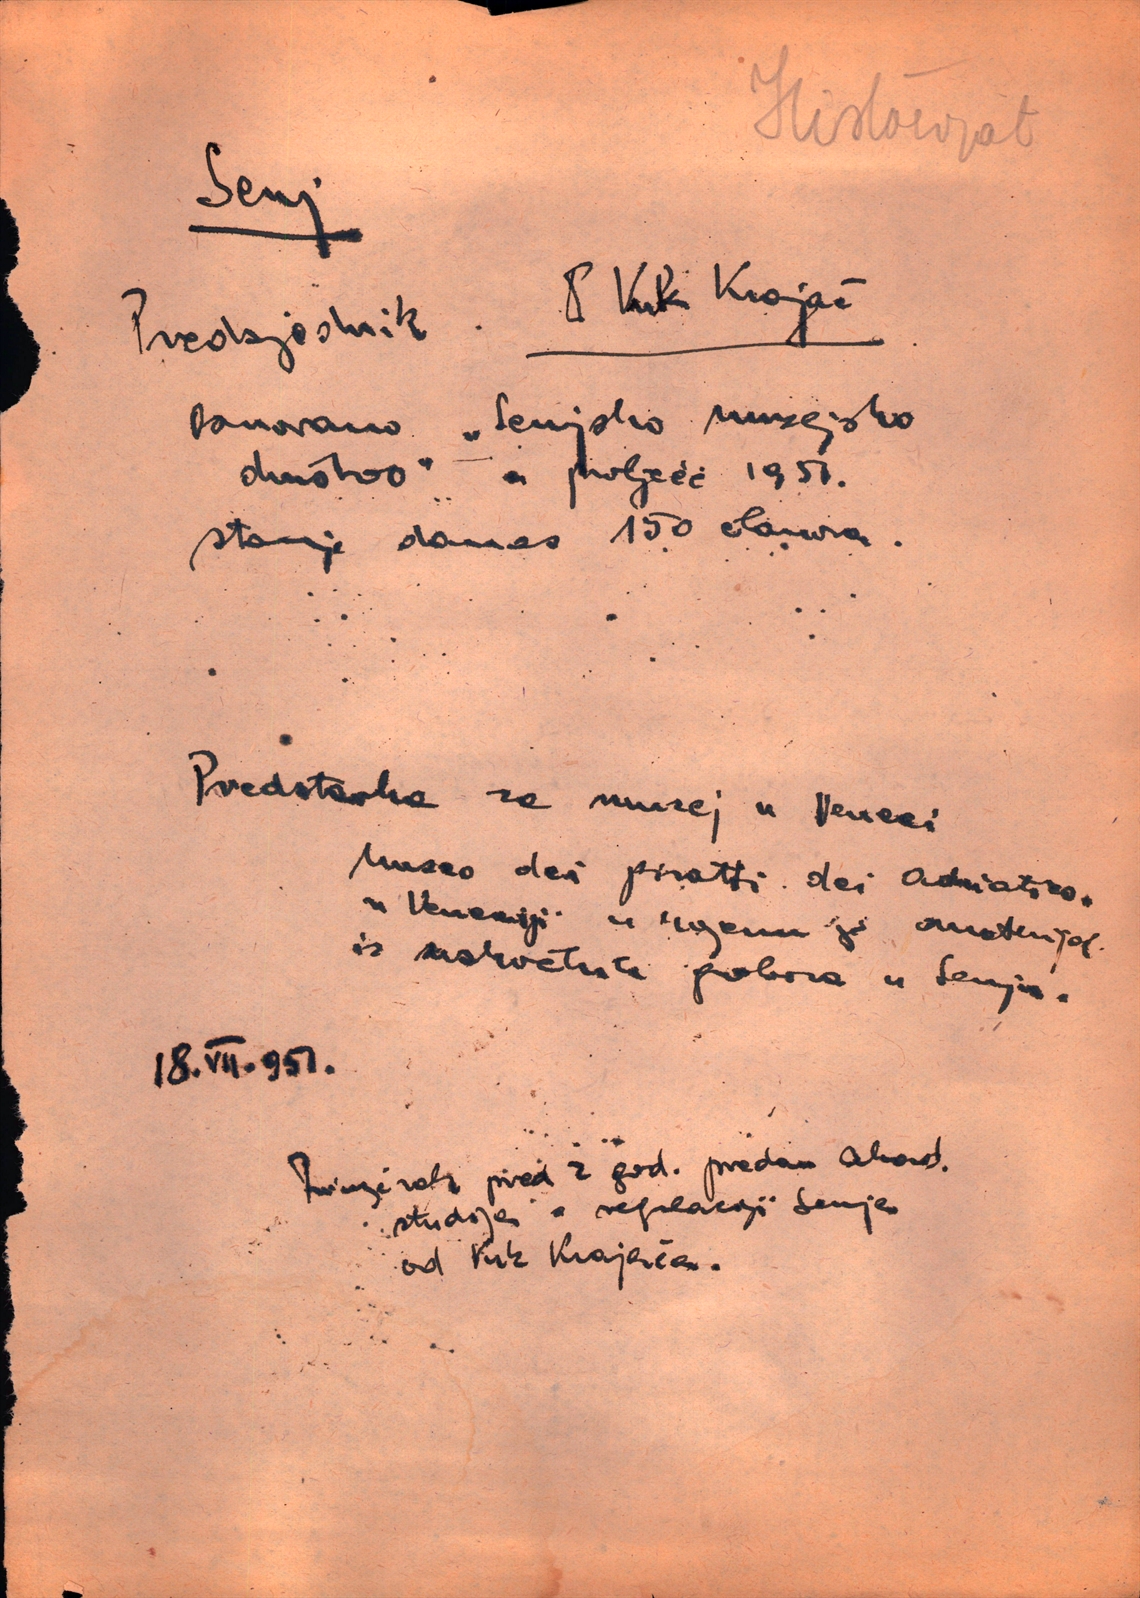 Historijat
Senj
Predsjednik . Vuk Krajač
osnovano „Senjsko muzejsko
društvo" u proljeće 1951.
stanje danas 150 članova.
Predstavka za muzej u Veneci
Museo dei piratti dei Adriatico.
u Veneciji u njemu je materijal
iz uskočkih grobova u Senju.
18.VII.951.
pred 2 god. predan Akad.
studija o regulaciji Senja
od Vuk Krajača.